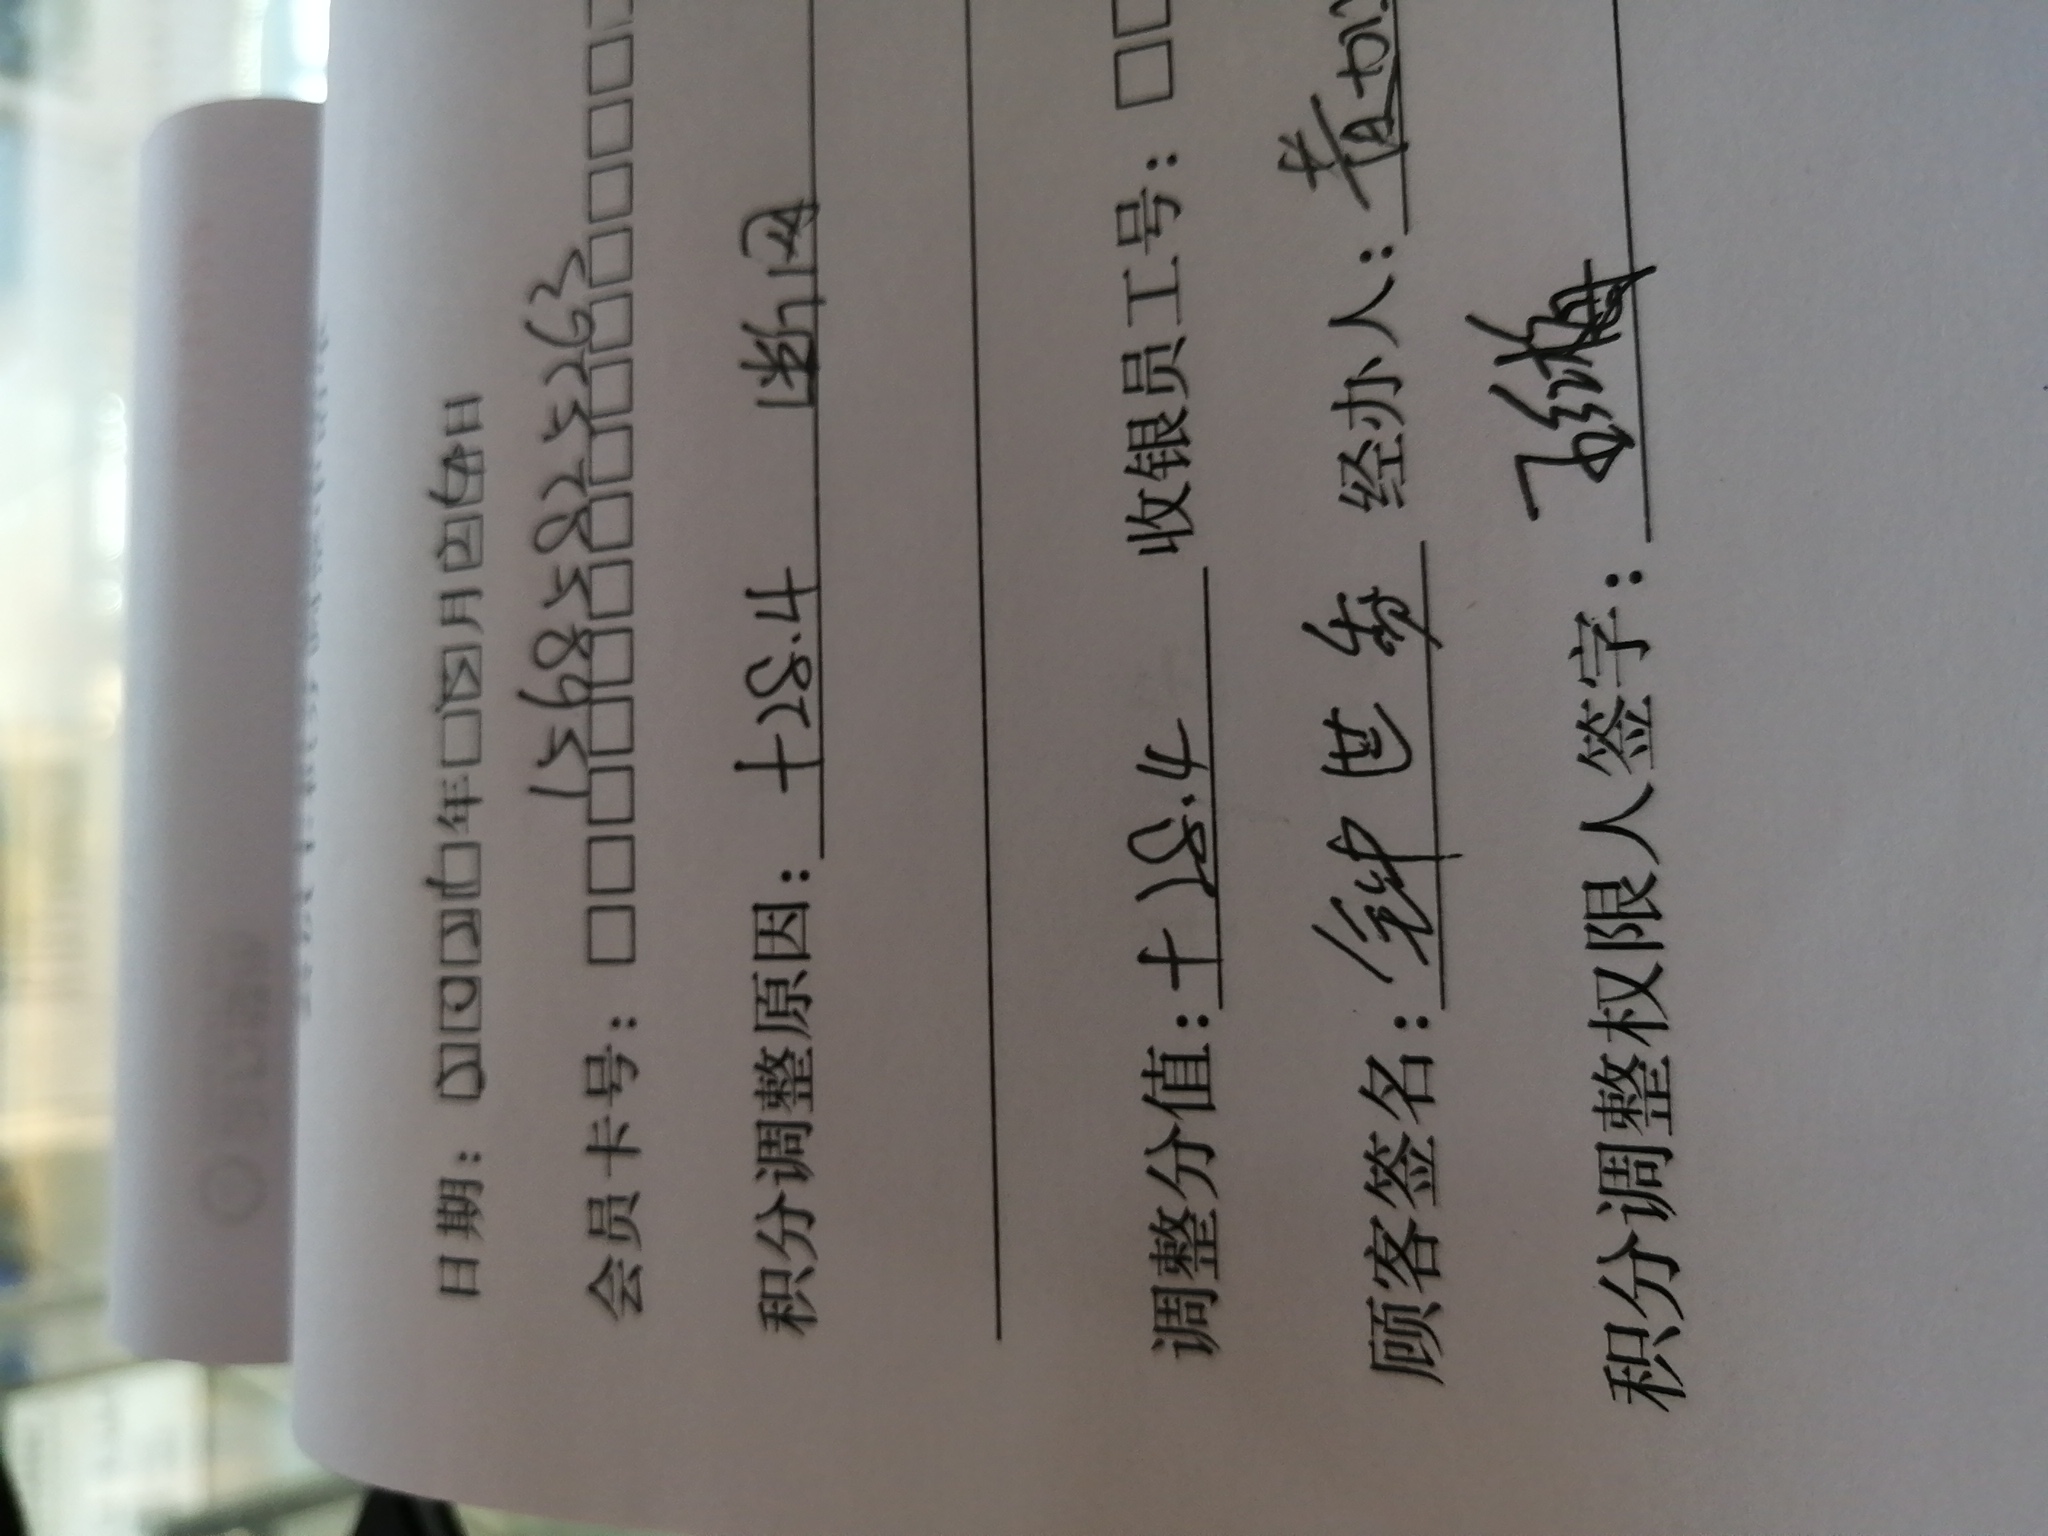 日期：2021年□5月24日
会员卡号：□□□15985825263□□□□
积分调整原因：+28.4 断网
调整分值：+28.4 收银员工号：□□
顾客签名：徐世秀 经办人：黄
积分调整权限人签字：